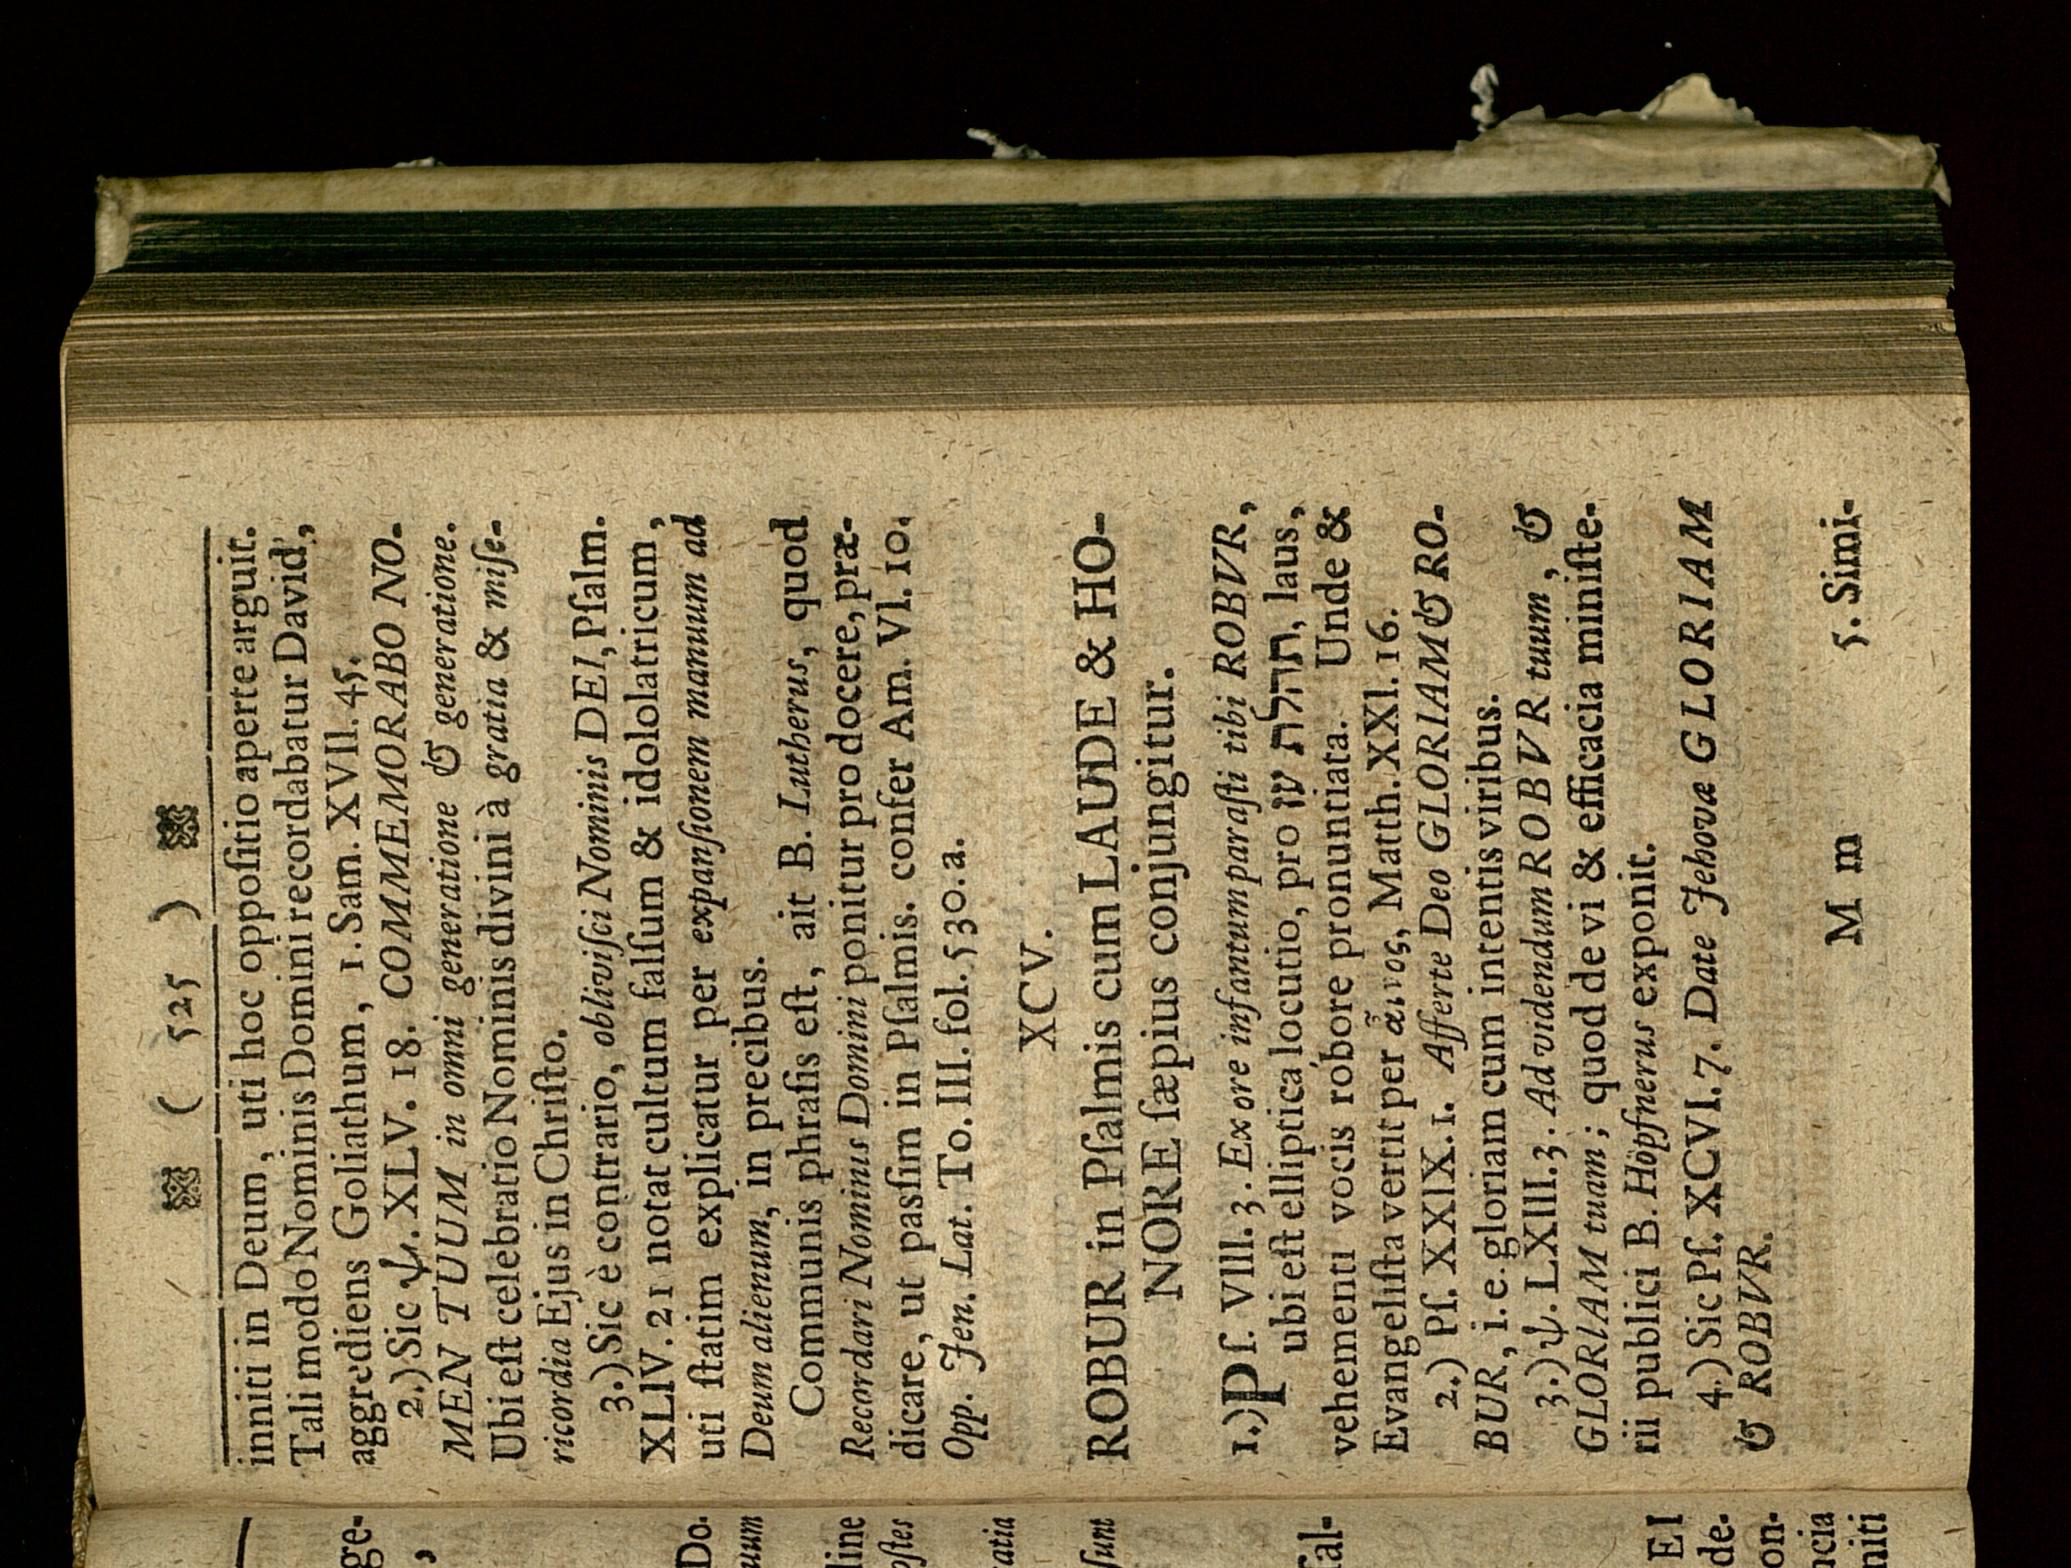 ( 525 )
inniti in Deum, uti hoc oppoſitio aperte arguit.
Tali modo Nominis Domini recordabatur David,
aggrediens Goliathum, 1. Sam. XVII. 45.
2.) Sic ψ. XLV. 18. COMMEMORABO NO-
MEN TUUM in omni generatione & generatione.
Ubi eſt celebratio Nominis divini à gratia & miſe-
ricordia Ejus in Chriſto.
3.) Sic è contrario, obliviſci Nominis DEI, Pſalm.
XLIV. 21 notat cultum falſum & idololatricum,
uti ſtatim explicatur per expanſionem manuum ad
Deum alienum, in precibus.
Communis phraſis eſt, ait B. Lutherus, quod
Recordari Nominis Domini ponitur pro docere, præ-
dicare, ut paſsim in Pſalmis. confer Am. VI. 10.
Opp. Jen. Lat. To. III. fol. 530. a.
XCV.
ROBUR in Pſalmis cum LAUDE & HO-
NORE ſæpius conjungitur.
1.) Pſ. VIII. 3. Ex ore infantum paraſti tibi ROBVR,
ubi eſt elliptica locutio, pro עז תהלת, laus,
vehementi vocis robore pronuntiata. Unde &
Evangeliſta vertit per αἶνος, Matth. XXI. 16.
2.) Pſ. XXIX. 1. Afferte Deo GLORIAM & RO-
BUR, i. e. gloriam cum intentis viribus.
3.) ψ. LXIII. 3. Ad videndum ROBVR tuum, &
GLORIAM tuam; quod de vi & efficacia miniſte-
rii publici B. Höpfnerus exponit.
4.) Sic Pſ. XCVI. 7. Date Jehovæ GLORIAM
& ROBVR.
M m
5. Simi-
ge-
,
Do-
uum
line
oſtes
atia
ſunt
Tal-
EI
de-
on-
ncia
niti